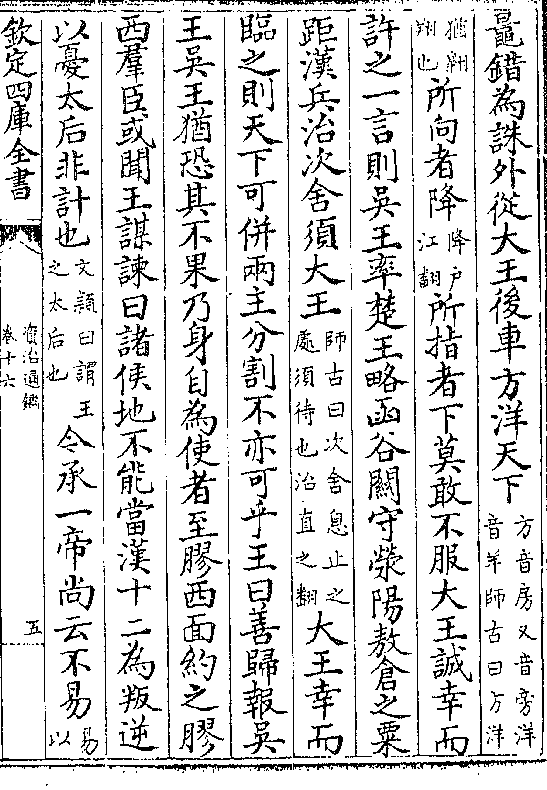 鼂錯為誅外從大王後車方洋天下方音房又音旁洋音羊師古曰方洋
猶翺翔也所向者降降户江翻所指者下莫敢不服大王誠幸而
許之一言則吳王率楚王略函谷關守滎陽敖倉之粟
距漢兵治次舍須大王師古曰次舍息止之處須待也治直之翻大王幸而
臨之則天下可併兩主分割不亦可乎王曰善歸報吳
王吳王猶恐其不果乃身自為使者至膠西面約之膠
西羣臣或聞王謀諫曰諸侯地不能當漢十二為叛逆
以憂太后非計也文穎曰謂王之太后也今承一帝尚云不易易以
欽定四庫全書
資治通鑑
卷十六
五